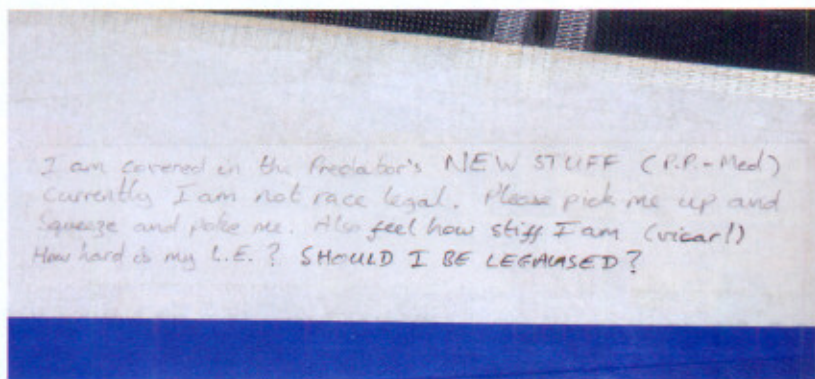 I am covered in the Predator's NEW STUFF (P.P.-Med)
Currently I am not race legal. Please pick me up and
Squeeze and poke me. Also feel how stiff I am (vicar!)
How hard is my L.E.? SHOULD I BE LEGALISED?